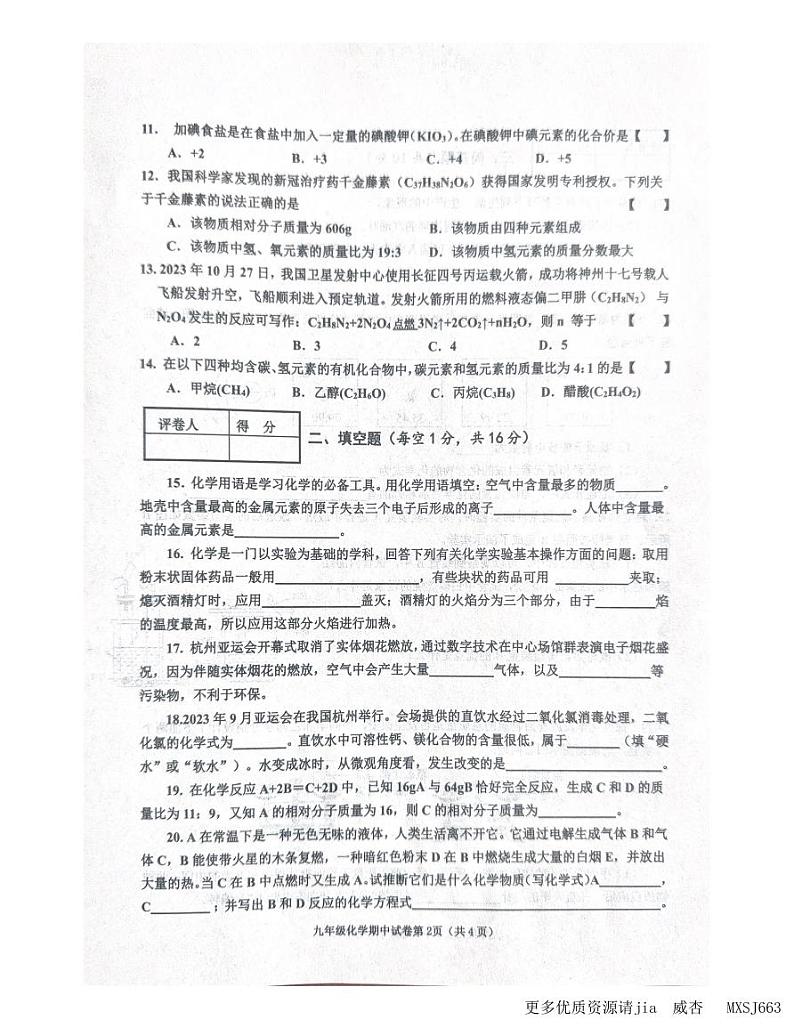 11. 加碘食盐是在食盐中加入一定量的碘酸钾(KIO₃)。在碘酸钾中碘元素的化合价是【 】
A. +2 B. +3 C. +4 D. +5
12. 我国科学家发现的新冠治疗药千金藤素(C₃₇H₃₈N₂O₆)获得国家发明专利授权。下列关
于千金藤素的说法正确的是 【 】
A. 该物质相对分子质量为 606g B. 该物质由四种元素组成
C. 该物质中氢、氧元素的质量比为 19:3 D. 该物质中氢元素的质量分数最大
13. 2023 年 10 月 27 日,我国卫星发射中心使用长征四号丙运载火箭,成功将神州十七号载人
飞船发射升空,飞船顺利进入预定轨道。发射火箭所用的燃料液态偏二甲肼(C₂H₈N₂) 与
N₂O₄发生的反应可写作:C₂H₈N₂+2N₂O₄ 点燃 3N₂↑+2CO₂↑+nH₂O,则 n 等于 【 】
A. 2 B. 3 C. 4 D. 5
14. 在以下四种均含碳、氢元素的有机化合物中,碳元素和氢元素的质量比为 4:1 的是【 】
A. 甲烷(CH₄) B. 乙醇(C₂H₆O) C. 丙烷(C₃H₈) D. 醋酸(C₂H₄O₂)
评卷人 得 分
二、填空题(每空 1 分,共 16 分)
15. 化学用语是学习化学的必备工具。用化学用语填空:空气中含量最多的物质______。
地壳中含量最高的金属元素的原子失去三个电子后形成的离子__________。人体中含量最
高的金属元素是______________。
16. 化学是一门以实验为基础的学科,回答下列有关化学实验基本操作方面的问题:取用
粉末状固体药品一般用__________________,有些块状的药品可用 __________夹取;
熄灭酒精灯时,应用____________盖灭;酒精灯的火焰分为三个部分,由于________焰
的温度最高,所以应用这部分火焰进行加热。
17. 杭州亚运会开幕式取消了实体烟花燃放,通过数字技术在中心场馆群表演电子烟花盛
况,因为伴随实体烟花的燃放,空气中会产生大量________气体,以及____________等
污染物,不利于环保。
18.2023 年 9 月亚运会在我国杭州举行。会场提供的直饮水经过二氧化氯消毒处理,二氧
化氯的化学式为_______。直饮水中可溶性钙、镁化合物的含量很低,属于_______(填“硬
水”或“软水”)。水变成冰时,从微观角度看,发生改变的是____________________。
19. 在化学反应 A+2B=C+2D 中,已知 16gA 与 64gB 恰好完全反应,生成 C 和 D 的质
量比为 11:9,又知 A 的相对分子质量为 16,则 C 的相对分子质量为__________。
20. A 在常温下是一种无色无味的液体,人类生活离不开它。它通过电解生成气体 B 和气
体 C,B 能使带火星的木条复燃,一种暗红色粉末 D 在 B 中燃烧生成大量的白烟 E,并放出
大量的热。当 C 在 B 中点燃时又生成 A。试推断它们是什么化学物质(写化学式)A________,
C________;并写出 B 和 D 反应的化学方程式________________________________。
九年级化学期中试卷第 2页(共 4 页)
更多优质资源请jia 威杏 MXSJ663